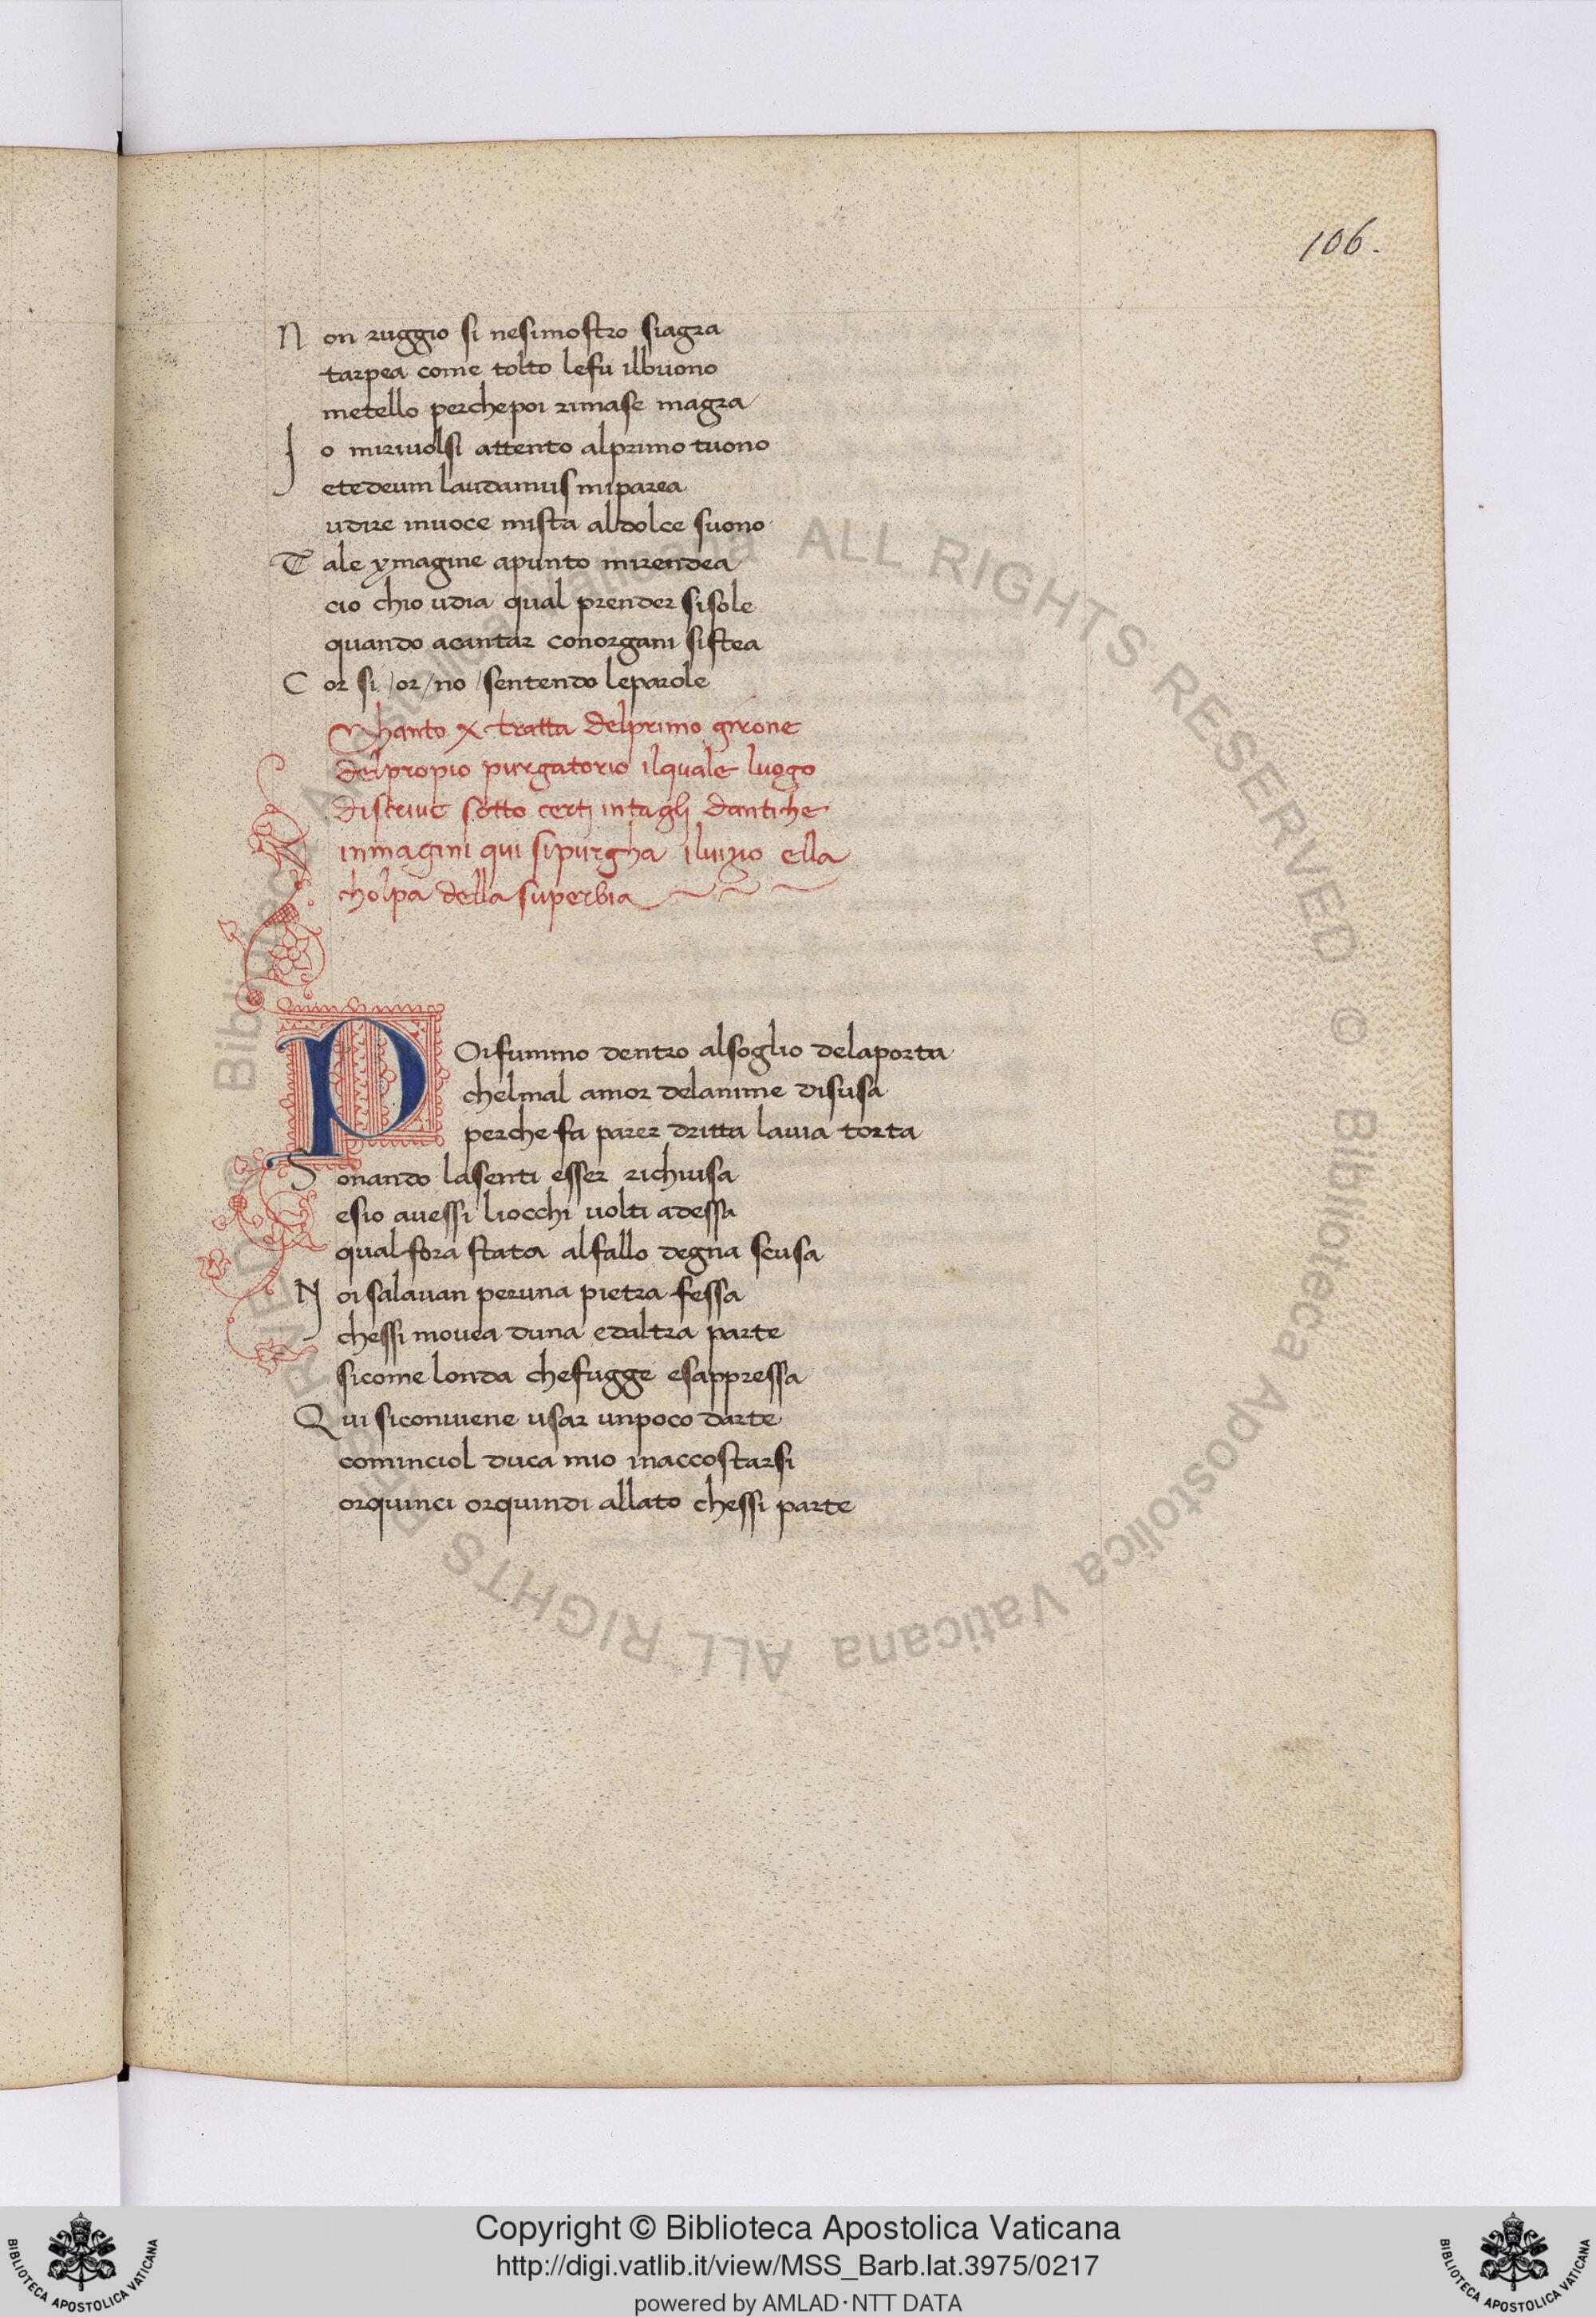 106.
Non ruggio si nesimostro siagra
tarpea come tolto lefu ilbuono
metello perchepoi rimase magra
Io miriuolsi attento alprimo tuono
etedeum laudamus miparea
udire inuoce mista aldolce suono
Tale ymagine apunto mirendea
cio chio udia qual prender sisole
quando acantar conorgani sistea
Cor si /or/no /sentendo leparole
Chanto X tratta delprimo girone
delpropio purgatorio ilquale luogo
discriue sotto certi intagli dantiche
inmagini qui sipurgha iluizio ella
cholpa della superbia
POi fummo dentro alsoglio delaporta
chelmal amor delanime disusa
perche fa parer dritta lauia torta
Sonando lasenti esser richiusa
esio auessi liocchi uolti adessa
qual fora stata alfallo degna scusa
Noi salauan peruna pietra fessa
chessi mouea duna edaltra parte
sicome londa chefugge esappressa
Qui siconuiene usar unpoco darte
cominciol duca mio inaccostarsi
orquinci orquindi allato chessi parte
Biblioteca Apostolica Vaticana ALL RIGHTS RESERVED © Biblioteca Apostolica Vaticana ALL RIGHTS RESERVED ©
BIBLIOTECA APOSTOLICA VATICANA
Copyright © Biblioteca Apostolica Vaticana
http://digi.vatlib.it/view/MSS_Barb.lat.3975/0217
powered by AMLAD·NTT DATA
BIBLIOTECA APOSTOLICA VATICANA